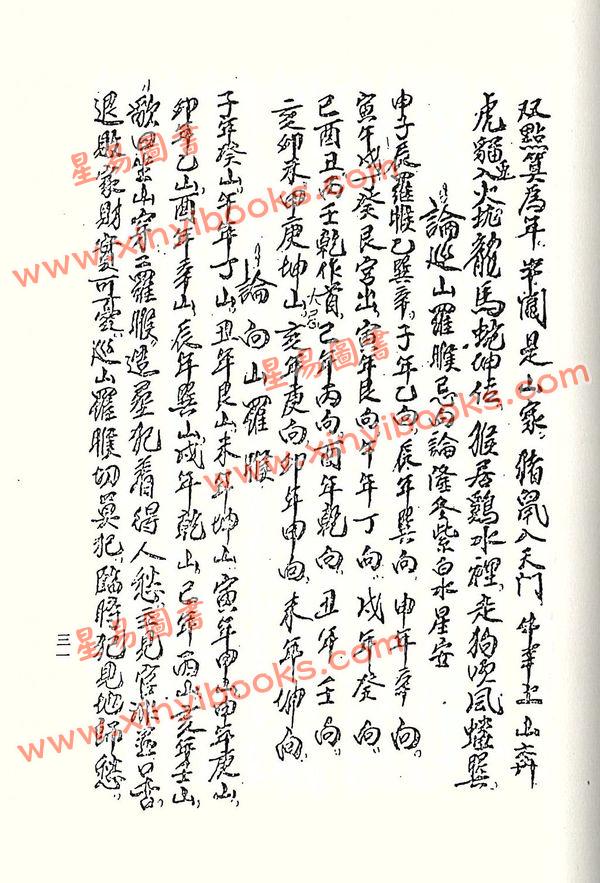 双點算為年，牢閒是山家，豬鼠入天門，牛羊上山奔
虎猫並入火坑，龍馬蛇坤佳，猴居鷄水裡，走狗須风蟠巽
論巡山羅睺忌向論隆冬紫白水星安
申子辰羅睺乙巽辛，子年乙向，辰年巽向，申年辛向
寅午戌癸艮宮出，寅年艮向，午年丁向，戌年癸向
巳酉丑丙壬乾作首，巳年丙向，酉年乾向，丑年壬向
亥卯未甲庚坤山大忌，亥年庚向，卯年甲向，未年坤向
論向山羅睺
子年癸山，午年丁山，丑年艮山，未年坤山，寅年甲山，申年庚山
卯年乙山，酉年辛山，辰年巽山，戌年乾山，巳年丙山，亥年壬山
歌曰坐山穿山羅睺，造塟犯着得人愁，主見官非並口舌
退敗家財实可憂，巡山羅睺切莫犯，臨時犯見地師愁
三一
星易圖書
www.xinyibooks.com
星易圖書
www.xinyibooks.com
星易圖書
www.xinyibooks.com